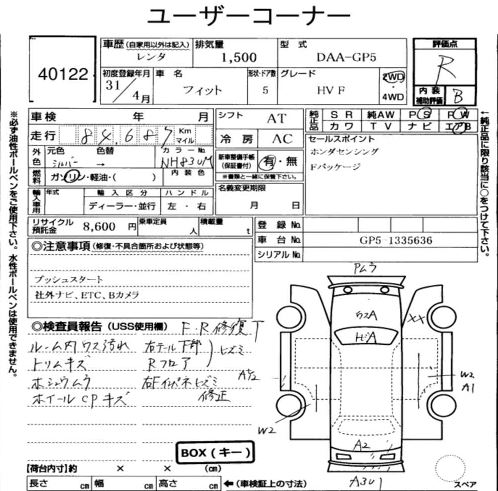 ユーザーコーナー
40122
車歴 (自家用以外は記入) レンタ
排気量 1,500
型式 DAA-GP5
評価点 R
初度登録年月 31/4月
車名 フィット
形状・ドア数 5
グレード HV F
2WD・4WD
内装補助評価 B
車検 年 月
シフト AT
純正品 SR 純AW PS PW
カワ TV ナビ エアB
走行 84,687 Km マイル
冷房 AC
セールスポイント
ホンダセンシング
Fパッケージ
外色 元色 シルバー → 色替
カラーNo. NH830M
内装色
燃料 ガソリン・軽油・( )
新車整備手帳(保証書付) 有・無
※書類と一緒に保管下さい
輸入車用 年式 輸入区分 ハンドル
ディーラー・並行 左・右
名義変更期限
月 日
リサイクル預託金 8,600 円
乗車定員 人
積載量 t
登録No.
車台No. GP5 1335636
シリアルNo.
◎注意事項 (修復・不具合箇所および状態等)
プッシュスタート
社外ナビ、ETC、Bカメラ
◎検査員報告 (USS使用欄) F.R修復
ルーム内ウス汚れ 右テール下部
トリムキズ Rフロア ヒズミ
ホシュウムラ 右Fインパネヒズミ
ホイールCPキズ 修正
BOX (キー)
【荷台内寸】約 × × (cm)
長さ cm 幅 cm 高さ cm ←(車検証上の寸法)
※必ず油性ボールペンをご使用下さい。水性ボールペンは使用できません。
※純正品に限り該当に○をつけて下さい。
Pムラ
ガラスA
XX
A1/2
W2
A1
W2
A2
A3U1
スペア